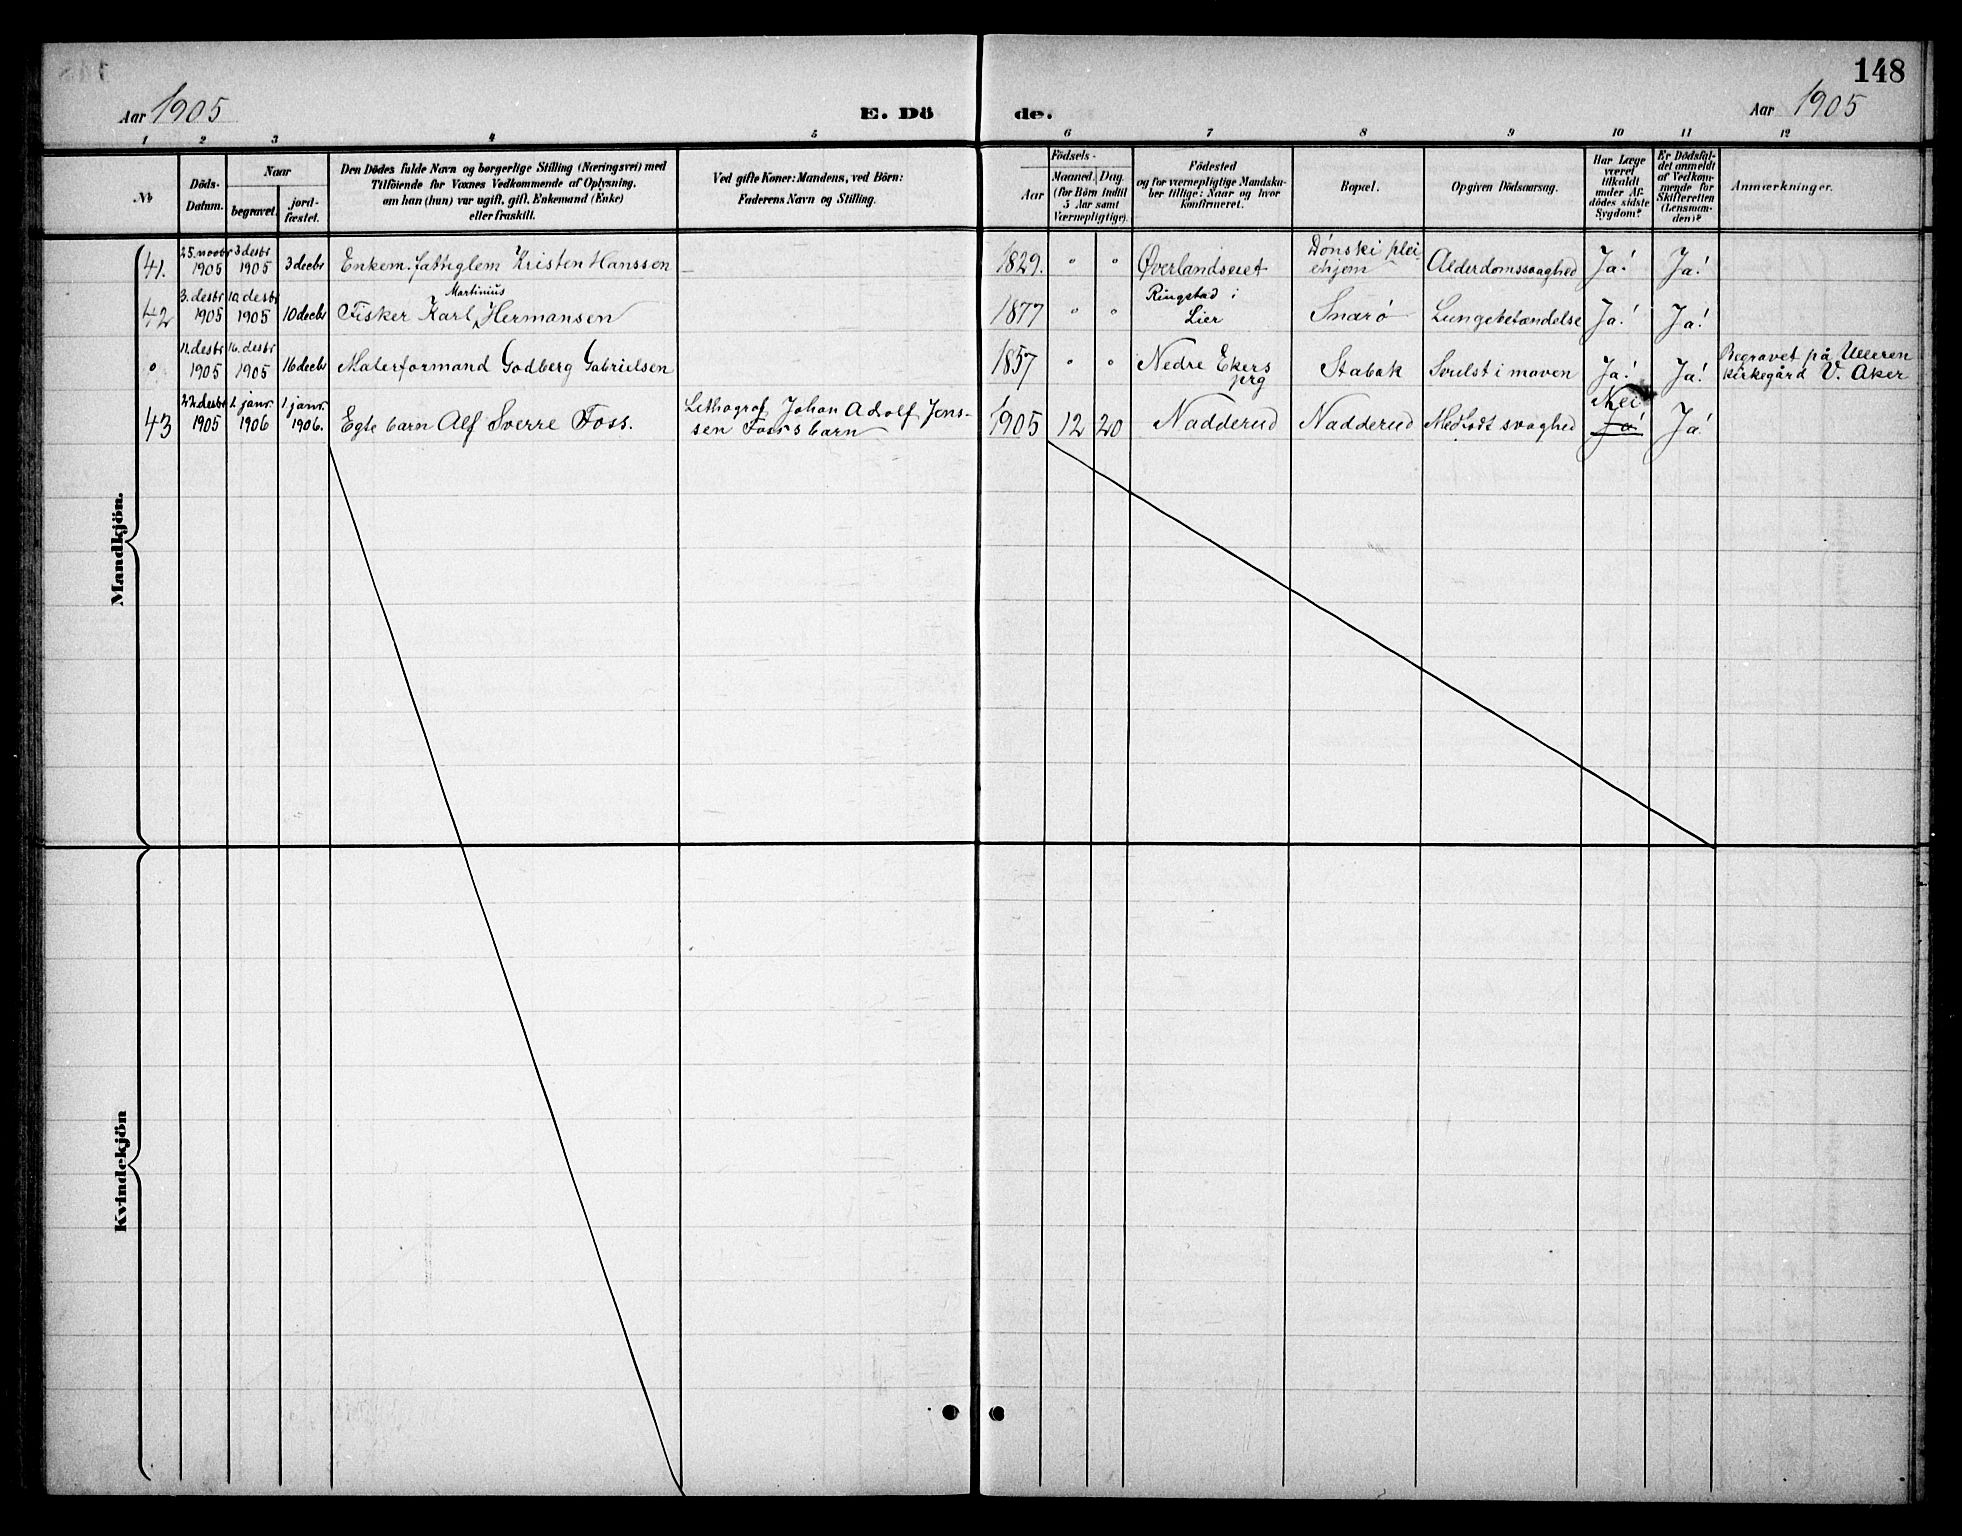 148
Aar 1905
E. Dö
de.
Aar 1905
1 2 3 4 5 6 7 8 9 10 11 12
No
Döds-
Datum.
Naar
begravet.
jord-
fæstet.
Den Dödes fulde Navn og borgerlige Stilling (Næringsvei) med
Tilföiende for Voxnes Vedkommende af Oplysning,
om han (hun) var ugift, gift, Enkemand (Enke)
eller fraskilt.
Ved gifte Koner: Mandens, ved Börn:
Faderens Navn og Stilling.
Födsels-
Aar
Maaned. Dag.
(for Börn indtil
5 Aar samt
Værnepligtige).
Födested
og for værnepligtige Mandska-
ber tillige: Naar og hvor
konfirmeret.
Bopæl.
Opgiven Dödsaarsag.
Har Læge
været
tilkaldt
under Af-
dödes sidste
Sygdom?
Er Dödsfal-
det anmeldt
af Vedkom-
mende for
Skifteretten
(Lensman-
den)?
Anmærkninger.
Mandkjön.
41.
25. novbr
1905
3 desbr
1905
3 decbr
Enkem. fattiglem Kristen Hanssen
—
1829.
" "
Øverlandseiet
Dønski plei
ehjem
Alderdomssvaghed
Ja!
Ja!
42
3. desbr
1905
10. desbr
1905
10 decbr
Martinius
Fisker Karl Hermansen
1877
" "
Ringstad i
Lier
Snarø
Lungebetændelse
Ja!
Ja!
"
11. desbr
1905
16. desbr
1905
16 decbr
Malerformand Godberg Gabrielsen
1857
" "
Nedre Ekers
prg
Stabæk
Svulst i maven
Ja!
Ja!
Begravet på Ulleren
kirkegård V. Aker
43
22. desbr
1905
1. janr
1906
1 janr.
1906.
Egte barn Alf Sverre Foss.
Lithograf Johan Adolf Jens-
sen Foss's barn
1905
12
20
Nadderud
Nadderud
Medfødt svaghed
Nei
Ja!
Ja!
Kvindekjön